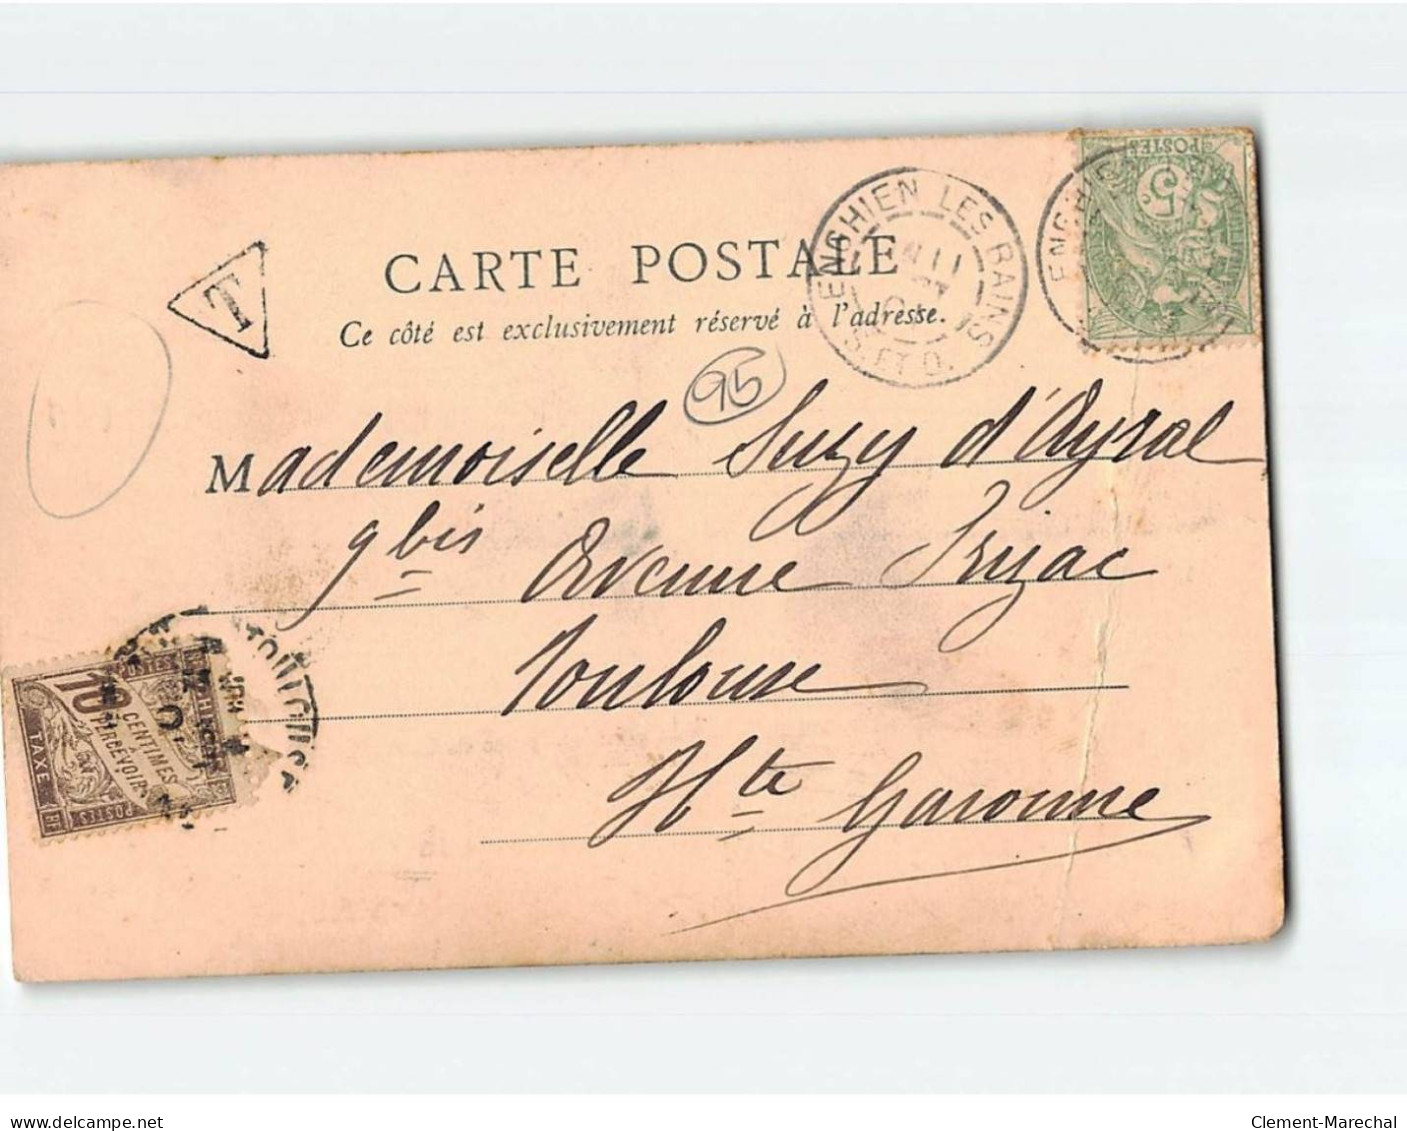 CARTE POSTALE
Ce côté est exclusivement réservé à l'adresse.
T
ENGHIEN LES BAINS
S. ET O.
5
POSTES
95
Mademoiselle Suzy d'Ayral
9 bis Avenue Frizac
Toulouse
Hte Garonne
10 CENTIMES
À PERCEVOIR
TAXE
POSTES
delcampe.net
Clement-Marechal